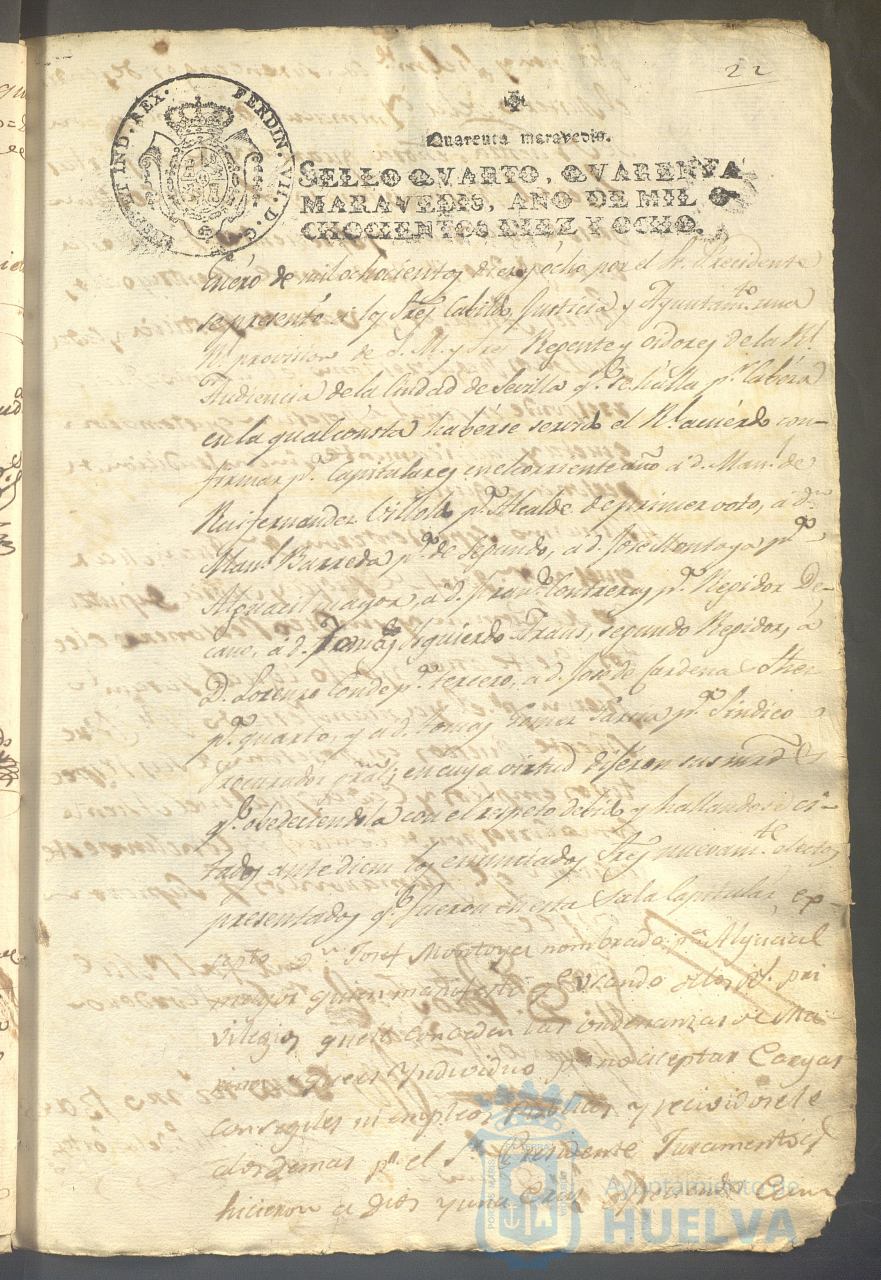 22
HISP. ET IND. REX. FERDIN. VII. D. G.
Quarenta maravedis.
SELLO QVARTO, QVARENTA
MARAVEDIS, AÑO DE MIL O
CHOCIENTOS DIEZ Y OCHO.
enero de mil ochocientos diez y ocho por el Sr. Precidente
se presentó a los Sres Cabildo, Justicia y Ayuntamto. una
Rl. provision de S. M. y Sres Regente y oidores de la Rl.
Audiencia de la Ciudad de Sevilla qe. se halla pr. cabeza
en la qual consta haberse servido el Rl. acuerdo con-
firmar pa. Capitulares en el corriente año a d. Manl. de
Ruifernandez Villoldo pa. Alcalde de primer voto, a dn.
Manl. Barreda pa. de segundo, a d. Jose Montoya pa.
Alguacil mayor, a d. Franco. Contreras pa. Regidor De-
cano, a d. Tomas Izquierdo Fraus, segundo Regidor, a
D. Lorenzo Conde pa. tercero, a d. Jose de Cardenas
pa. quarto, y a d. Tomas Gomez Garcia pa. Sindico
Procurador gral; en cuya virtud dijeron sus mrds
qe. obedeciendola con el respeto debido y hallandose ci-
tados ante diem los enunciados Sres nuevamte. electos
presentados qe. fueron en esta Sala Capitular, ex-
septo dn. Josef Montoya nombrado pa. Alguacil
mayor quien manifestó qe. usando de los pri
vilegios que le conceden las ordenanzas de Ma-
rina quees Yndividuo pa. no aceptar Cargas
consegiles ni empleos Publicos y recividosele
alos demas pr. el Sr. Presidente Juramento qe.
hicieron a Dios y una Cruz ofreciendo Cum
Ayuntamiento de
HUELVA